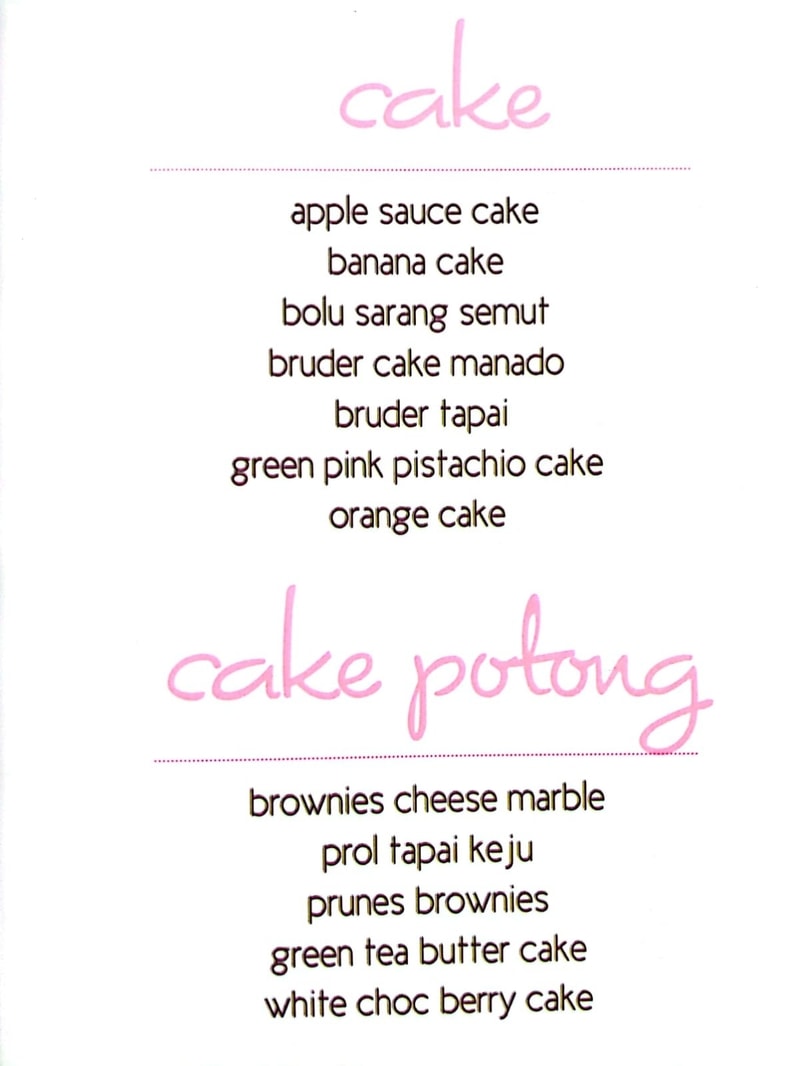 cake
apple sauce cake
banana cake
bolu sarang semut
bruder cake manado
bruder tapai
green pink pistachio cake
orange cake
cake potong
brownies cheese marble
prol tapai keju
prunes brownies
green tea butter cake
white choc berry cake